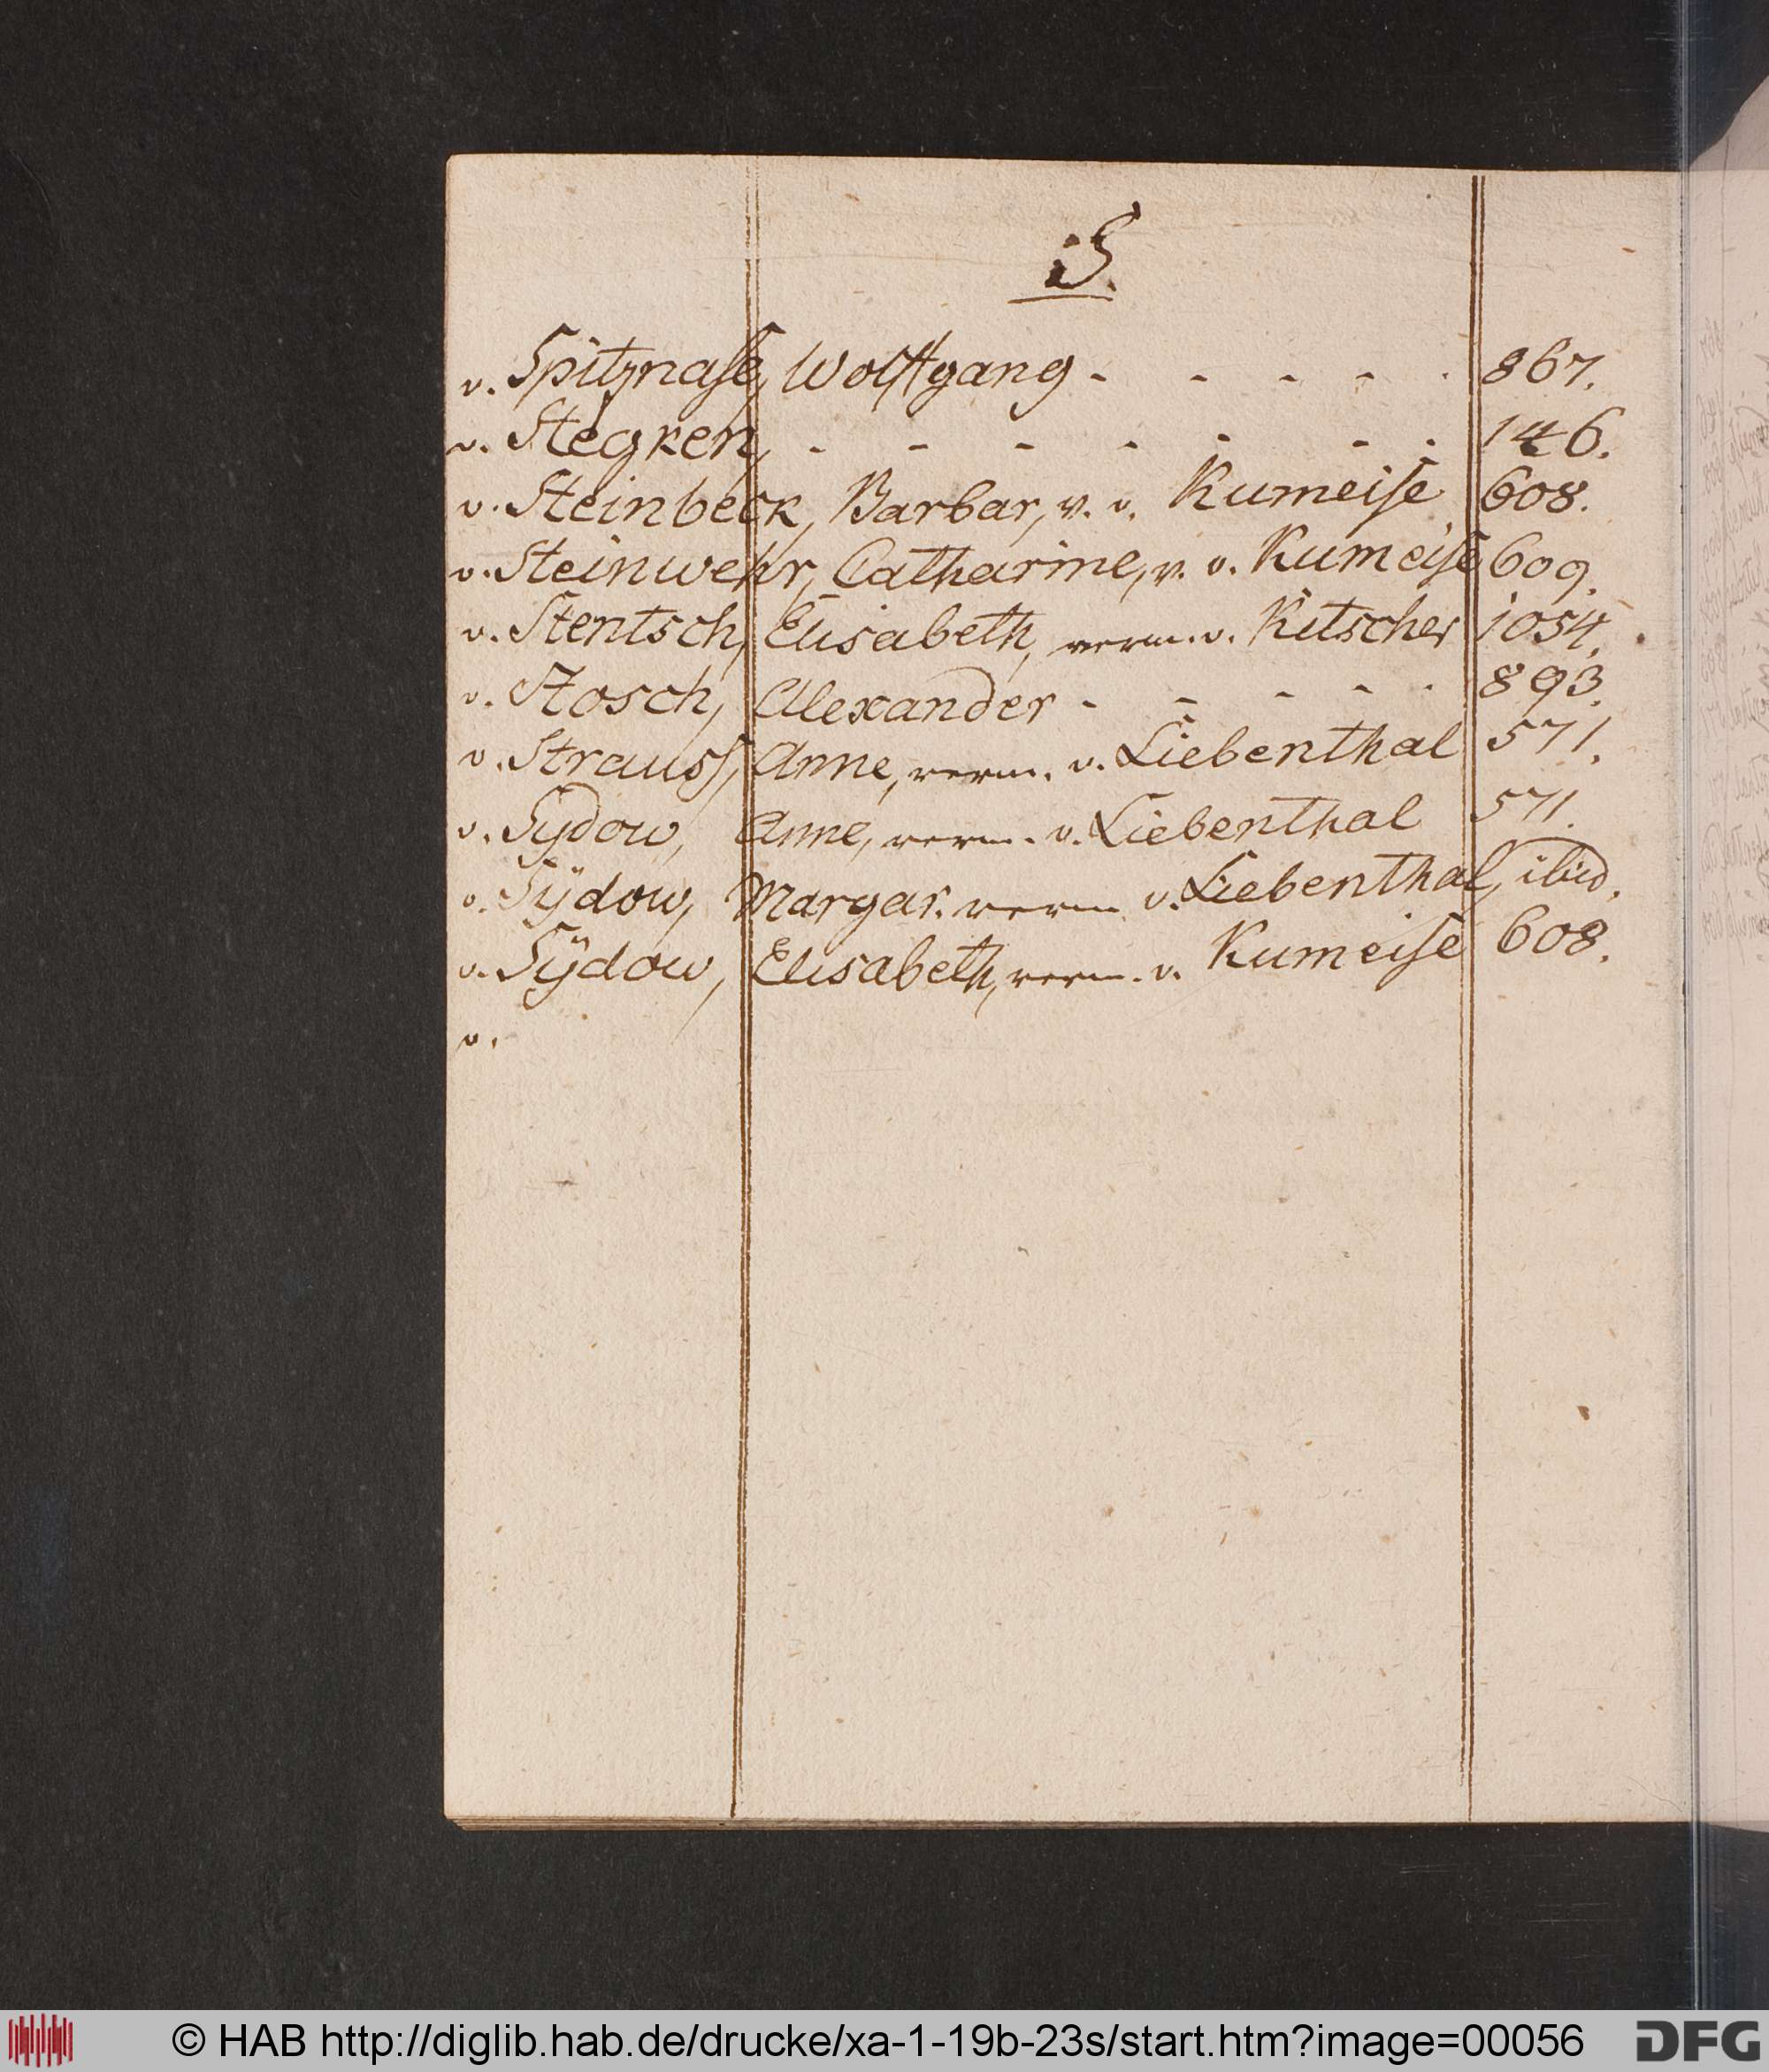 S.
v. Spitznase, Wolffgang - - - - - 867.
v. Stegken, - - - - - - - 146.
v. Steinbeck, Barbar, v. v. Kumeise 608.
v. Steinwehr, Catharine, v. v. Kumeise 609.
v. Stentsch, Elisabeth, verm. v. Kitscher 1054.
v. Stosch, Alexander - - - - - 893.
v. Strauss, Anne, verm. v. Liebenthal 571.
v. Sydow, Anne, verm. v. Liebenthal 571.
v. Sÿdow, Margar. verm v. Liebenthal, ibid.
v. Sÿdow, Elisabeth, verm. v. Kumeise 608.
v.
© HAB http://diglib.hab.de/drucke/xa-1-19b-23s/start.htm?image=00056
DFG